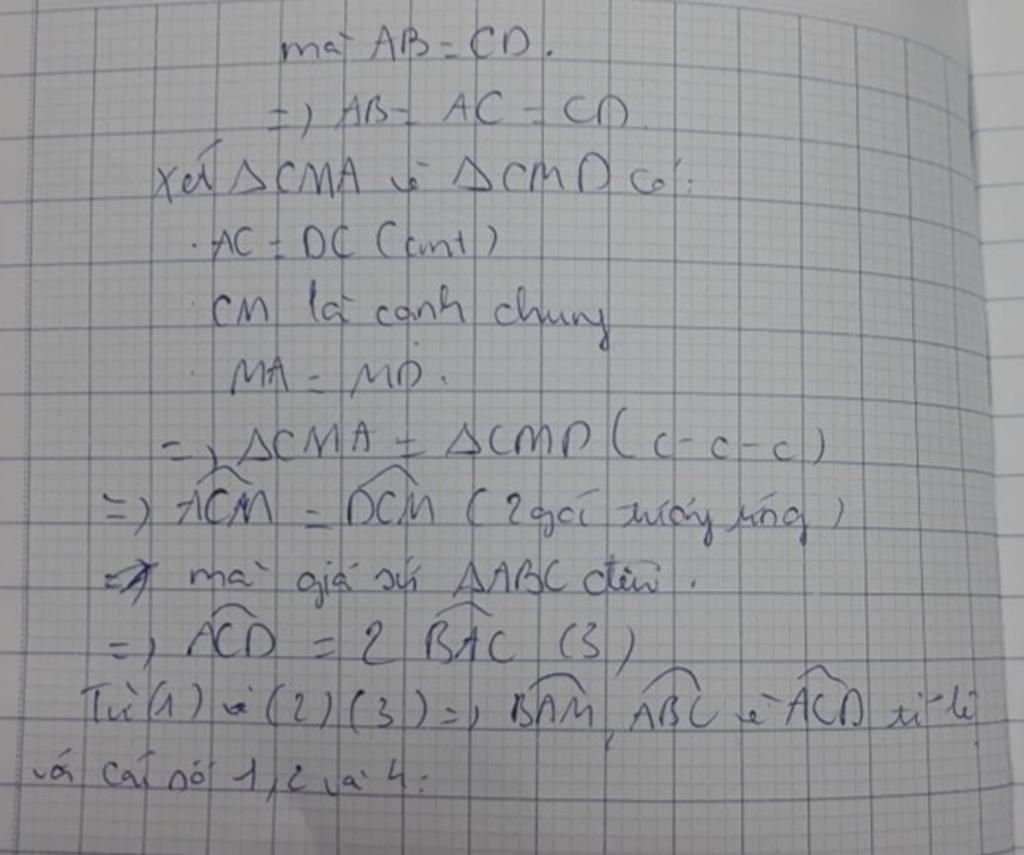 mà AB = CD.
=) AB = AC = CD.
Xét ΔCMA và ΔCMD có:
. AC = DC (cmt)
. CM là cạnh chung
. MA = MD.
=) ΔCMA = ΔCMD (c-c-c)
=) ACM = DCM (2 góc tương ứng)
mà giả sử ΔABC đều.
=) ACD = 2 BAC (3)
Từ (1) và (2) (3) =) BAM, ABC và ACD tỉ lệ
với các số 1, 2 và 4.